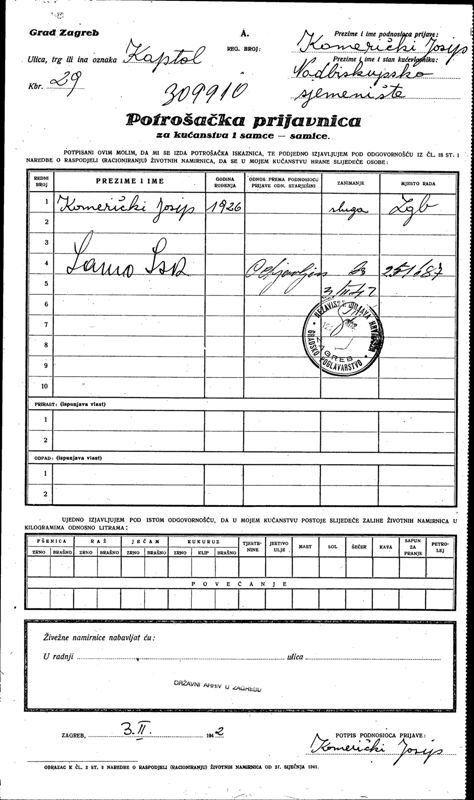 Grad Zagreb
Ulica, trg ili ina oznaka Kaptol
Kbr. 29
A.
REG. BROJ:
309910
Prezime i ime podnosioca prijave:
Komerički Josip
Prezime i ime i stan kućevlasnika:
Nadbiskupsko
sjemenište
Potrošačka prijavnica
za kućanstva i samce — samice.
POTPISANI OVIM MOLIM, DA MI SE IZDA POTROŠAČKA ISKAZNICA, TE PODJEDNO IZJAVLJUJEM POD ODGOVORNOŠĆU IZ ČL. 18 ST. 1
NAREDBE O RASPODJELI (RACIONIRANJU) ŽIVOTNIH NAMIRNICA, DA SE U MOJEM KUĆANSTVU HRANE SLIJEDEĆE OSOBE:
REDNI BROJ PREZIME I IME GODINA ROĐENJA ODNOS PREMA PODNOSIOCU PRIJAVE ODN. STARJEŠINI ZANIMANJE MJESTO RADA
1 Komerički Josip 1926 sluga Zgb
2
3
4 Odjavljen 251687
5 3/II 42
6
7
8
9
10
GRADSKO POGLAVARSTVO
ZAGREB
PRIRAST: (ispunjava vlast)
1
2
OTPAD: (ispunjava vlast)
1
2
UJEDNO IZJAVLJUJEM POD ISTOM ODGOVORNOŠĆU, DA U MOJEM KUĆANSTVU POSTOJE SLIJEDEĆE ZALIHE ŽIVOTNIH NAMIRNICA U
KILOGRAMIMA ODNOSNO LITRAMA:
PŠENICA RAŽ JEČAM KUKURUZ TJESTENINE JESTIVO ULJE MAST SOL ŠEĆER KAVA SAPUN ZA PRANJE PETROLEJ
ZRNO BRAŠNO ZRNO BRAŠNO ZRNO BRAŠNO ZRNO KLIP BRAŠNO
POVEĆANJE
Živežne namirnice nabavljat ću:
U radnji ulica
DRŽAVNI ARHIV U ZAGREBU
ZAGREB, 3. II. 1942
POTPIS PODNOSIOCA PRIJAVE:
Komerički Josip
OBRAZAC K ČL. 2 ST. 2 NAREDBE O RASPODJELI (RACIONIRANJU) ŽIVOTNIH NAMIRNICA OD 27. SIJEČNJA 1941.